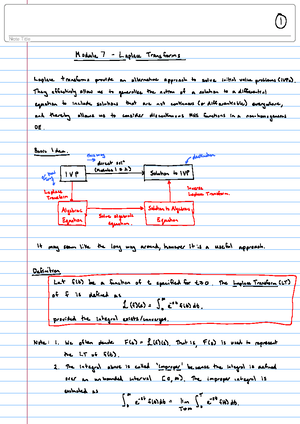 1
Note Title
Module 7 - Laplace Transforms
Laplace transforms provide an alternative approach to solve initial value problems (IVPs).
They effectively allow us to generalize the notion of a solution to a differential
equation to include solutions that are not continuous (or differentiable) everywhere,
and thereby allows us to consider discontinuous RHS functions in a nonhomogeneous
DE.
Basic Idea.
direct sol^n
(modules 1 & 2)
destination
IVP
Solution to IVP
Laplace
Transform
Inverse
Laplace Transform.
Algebraic
Equation
Solve algebraic
equation.
Solution to Algebraic
Equation
It may seem like the long way around, however it is a useful approach.
Definition
Let f(t) be a function of t specified for t≥0. The Laplace Transform (LT)
of f is defined as
ℒ(f)(s) = ∫_0^∞ e^{-st} f(t) dt.
provided the integral exists/converges.
Note: 1. We often denote F(s) = ℒ(f)(s). That is, F(s) is used to represent
the LT of f(t).
2. The integral above is called 'improper' because the integral is defined
over an unbounded interval [0, ∞). The improper integral is
evaluated as
∫_0^∞ e^{-st} f(t) dt = lim_{T→∞} ∫_0^T e^{-st} f(t) dt.